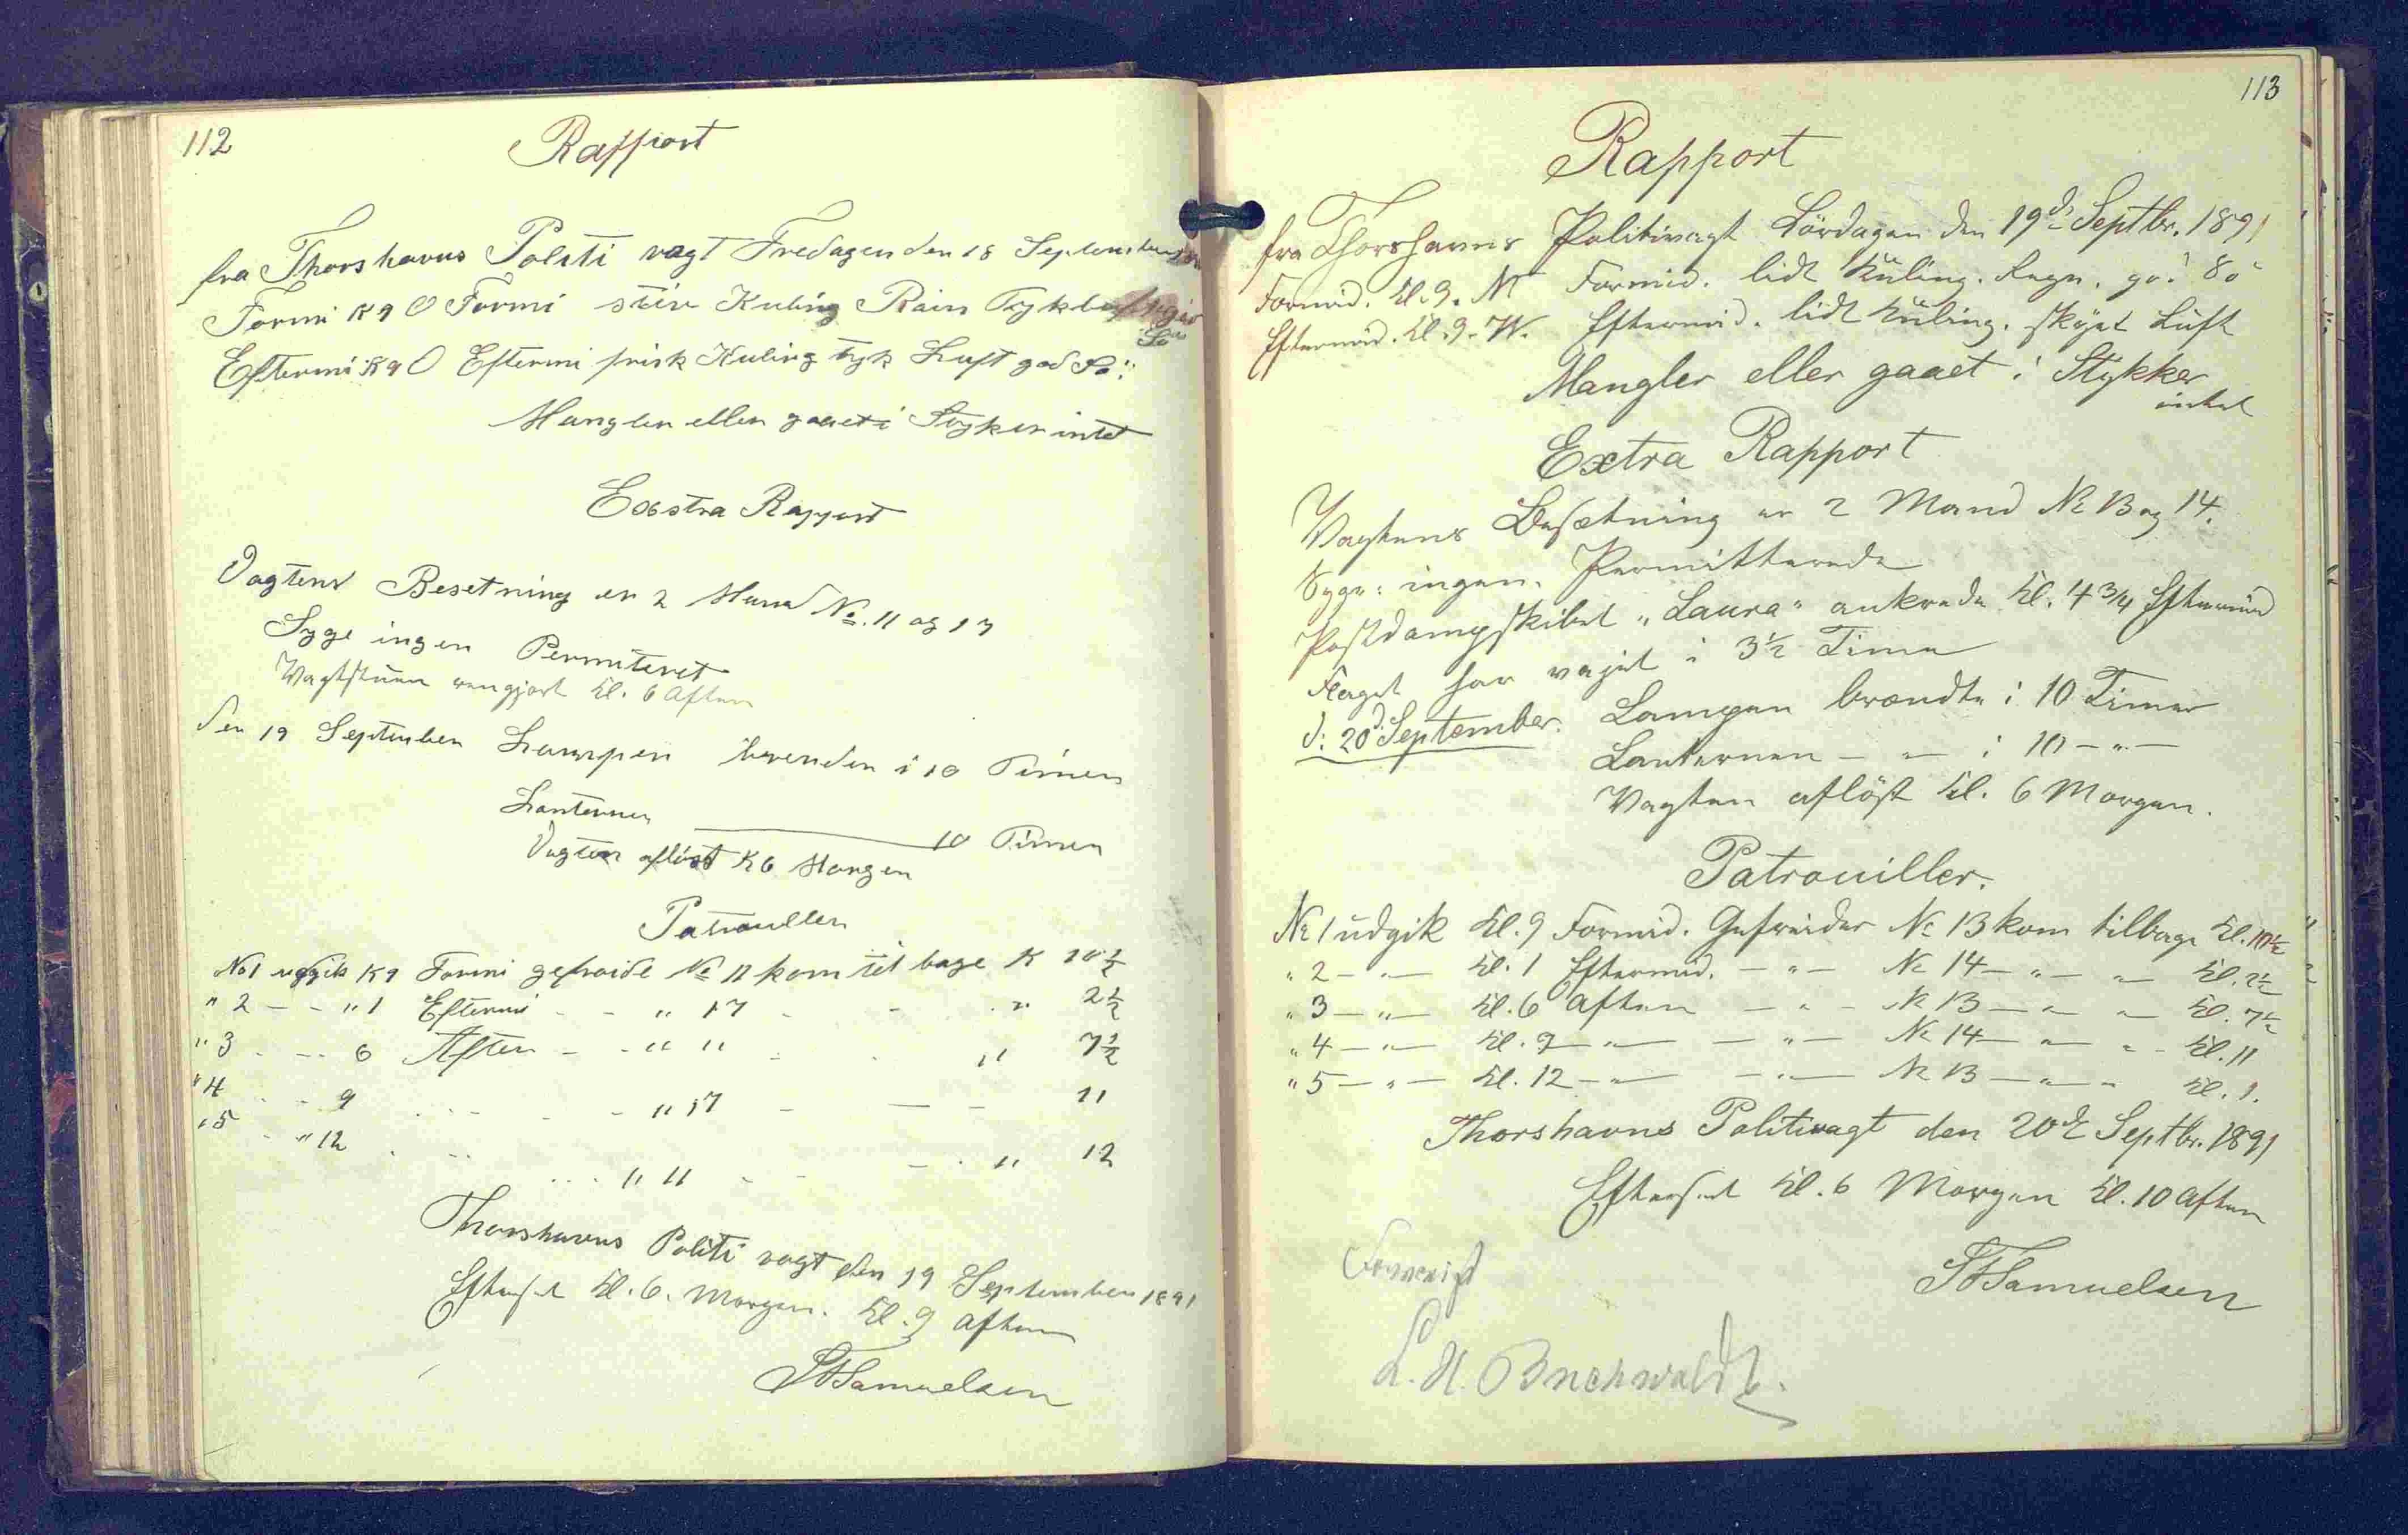 112
Rapport
fra Thorshavns Politi vagt Fredagen den 18 September
Formi K 9 O Formi stiv Kuling Rain Tyk
Eftermi K 9 O Eftermi frisk Kuling tyk Luft god Sö
Mangler eller gaaet i Stykker intet
Exstra Rapport
Vagtens Besetning er 2 Mand No. 11 og 17
Syge ingen Permiteret
Vagtstuen rengjort Kl. 6 Aften
Den 19 September Lampen brenden i 10 Timer
Lanternen 10 Timer
Vagten aflöst K 6 Morgen
Patrouller
No 1 udgik K 9 Formi gefreide No 11 kom til bage K 10 1/2
" 2 - - " 1 Eftermi - - " 17 - - " 2 1/2
" 3 - - 6 Aften - - " 11 - - " 7 1/2
" 4 - - 9 - - - " 17 - - - 11
" 5 - " 12 - - - " 11 - - - " 12
Thorshavns Politi vagt den 19 September 1891
Efterset Kl. 6. Morgen. Kl. 9 Aften
Samuelsen
113
Rapport
fra Thorshavns Politivagt Lördagen den 19d. Septbr. 1891
Formid. Kl. 9. N Formid. lidt Küling. Regn. god Sö
Eftermid. Kl. 9. W. Eftermid. lidt Küling. skyet Luft
Mangler eller gaaet i Stykker
intet
Extra Rapport
Vagtens Besætning er 2 Mand No 13 og 14.
Syge: ingen. Permitterede
Postdampskibet „Laura" ankrede Kl. 4 3/4 Eftermid
Flaget har vajet i 3 1/2 Time
d: 20d. September. Lampen brændte i 10 Timer
Lanternen - " - i 10 - " -
Vagten aflöst Kl. 6 Morgen.
Patrouiller.
No 1 udgik Kl. 9 Formid. Gefreider No 13 kom tilbage Kl. 10 1/2
" 2 - " - Kl. 1 Eftermid. - " - No 14 - " - " - Kl. 2 1/2
" 3 - " - Kl. 6 Aften - " - No 13 - " - " - Kl. 7 1/2
" 4 - " - Kl. 9 - " - - " - No 14 - " - " - Kl. 11
" 5 - " - Kl. 12 - " - - " - No 13 - " - " - Kl. 1.
Thorshavns Politivagt den 20d. Septbr. 1891
Efterset Kl. 6 Morgen Kl. 10 Aften
Samuelsen
L. H. Buchwaldt.